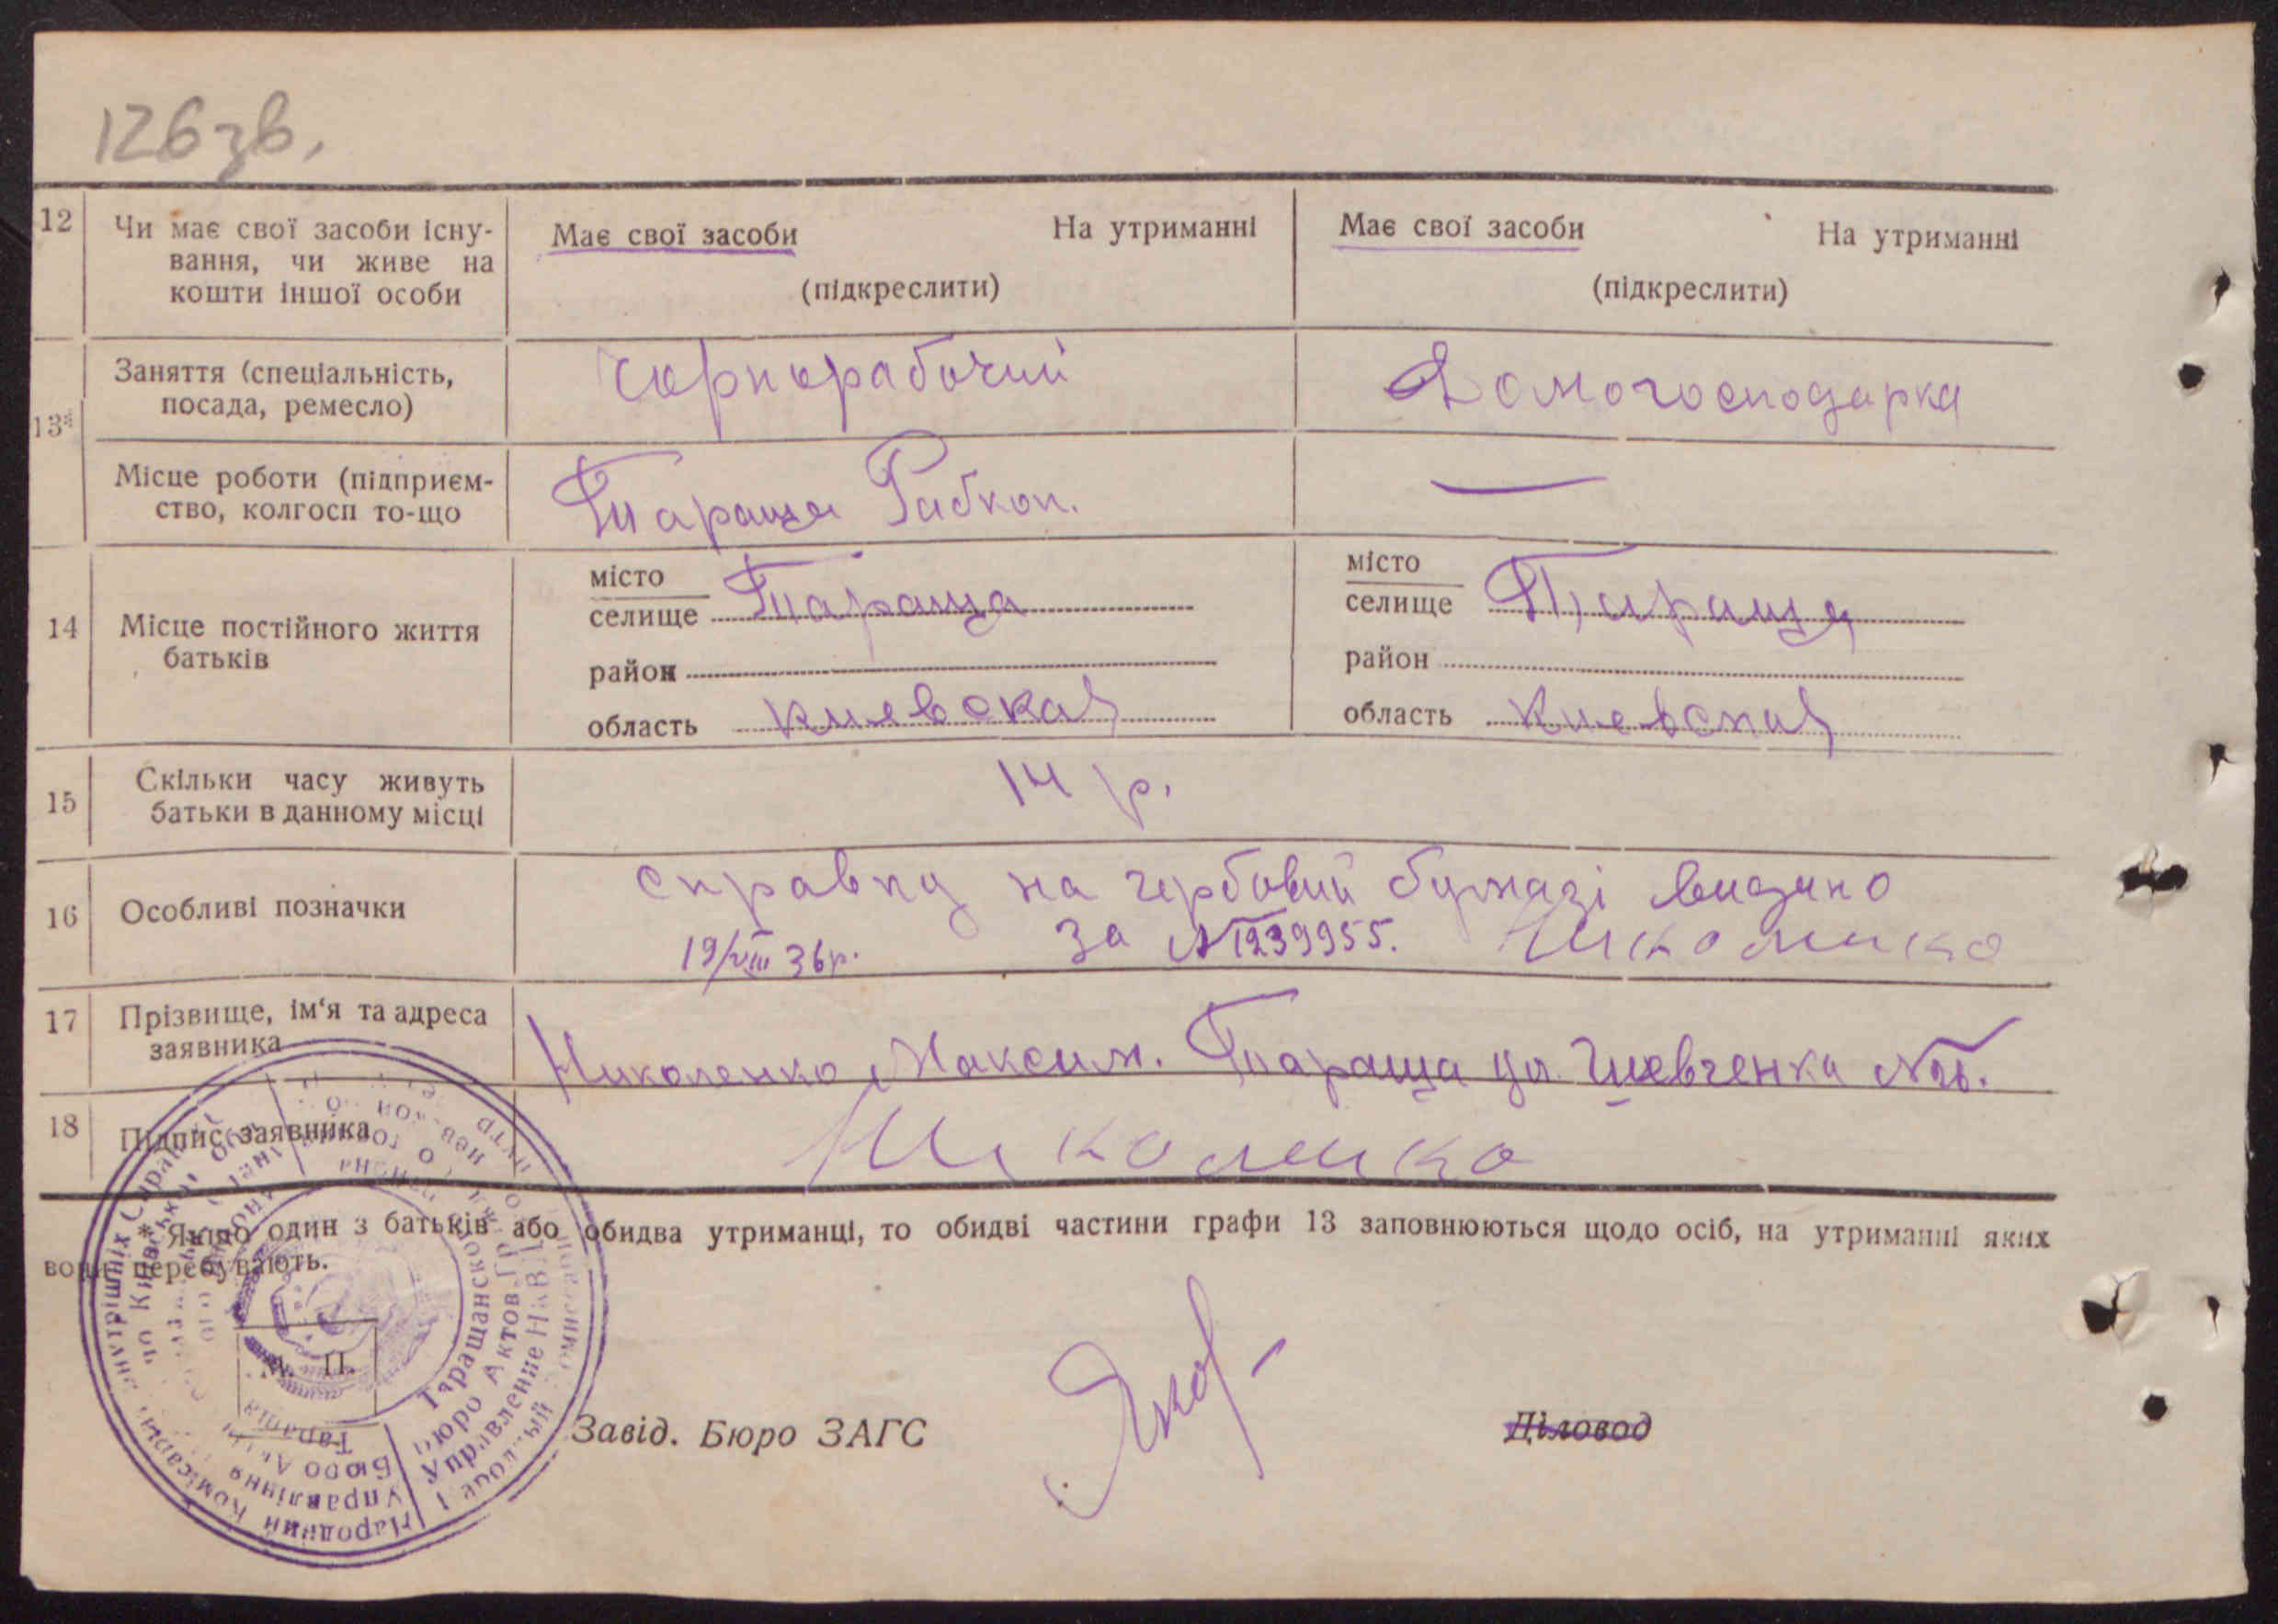 126 зв.
12 Чи має свої засоби існу- Має свої засоби На утриманні Має свої засоби На утриманні
вання, чи живе на
кошти іншої особи (підкреслити) (підкреслити)
13* Заняття (спеціальність, Чорнорабочий Домогосподарка
посада, ремесло)
Місце роботи (підприєм- Тараща Рабкоп. —
ство, колгосп то-що
14 Місце постійного життя батьків
місто
селище Тараща
район
область Киевская
місто
селище Тараща
район
область Киевская
15 Скільки часу живуть 14 р.
батьки в данному місці
16 Особливі позначки справку на гербовий бумазі видано
19/VIII 36 р. за № 1239955.
17 Прізвище, ім'я та адреса
заявника Николенко Максим. Тараща ул. Шевченка
18 Підпис заявника
* Якщо один з батьків або обидва утриманці, то обидві частини графи 13 заповнюються щодо осіб, на утриманні яких
вони перебувають.
М. П.
Завід. Бюро ЗАГС Діловод
Народний Комісаріат Внутрішніх Справ
Управління
Бюро
Тараща
Управление НКВД
Бюро Актов Гр.
Таращанское